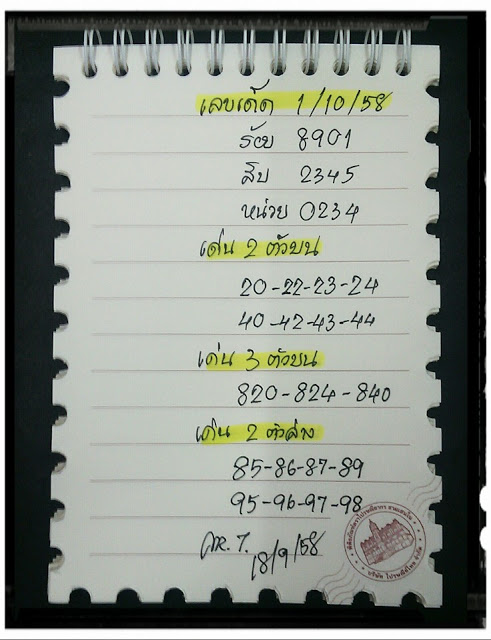 เลขเด็ด 1/10/58
ร้อย 8901
สิบ 2345
หน่วย 0234
เด่น 2 ตัวบน
20-22-23-24
40-42-43-44
เด่น 3 ตัวบน
820-824-840
เด่น 2 ตัวล่าง
85-86-87-89
95-96-97-98
18/9/58